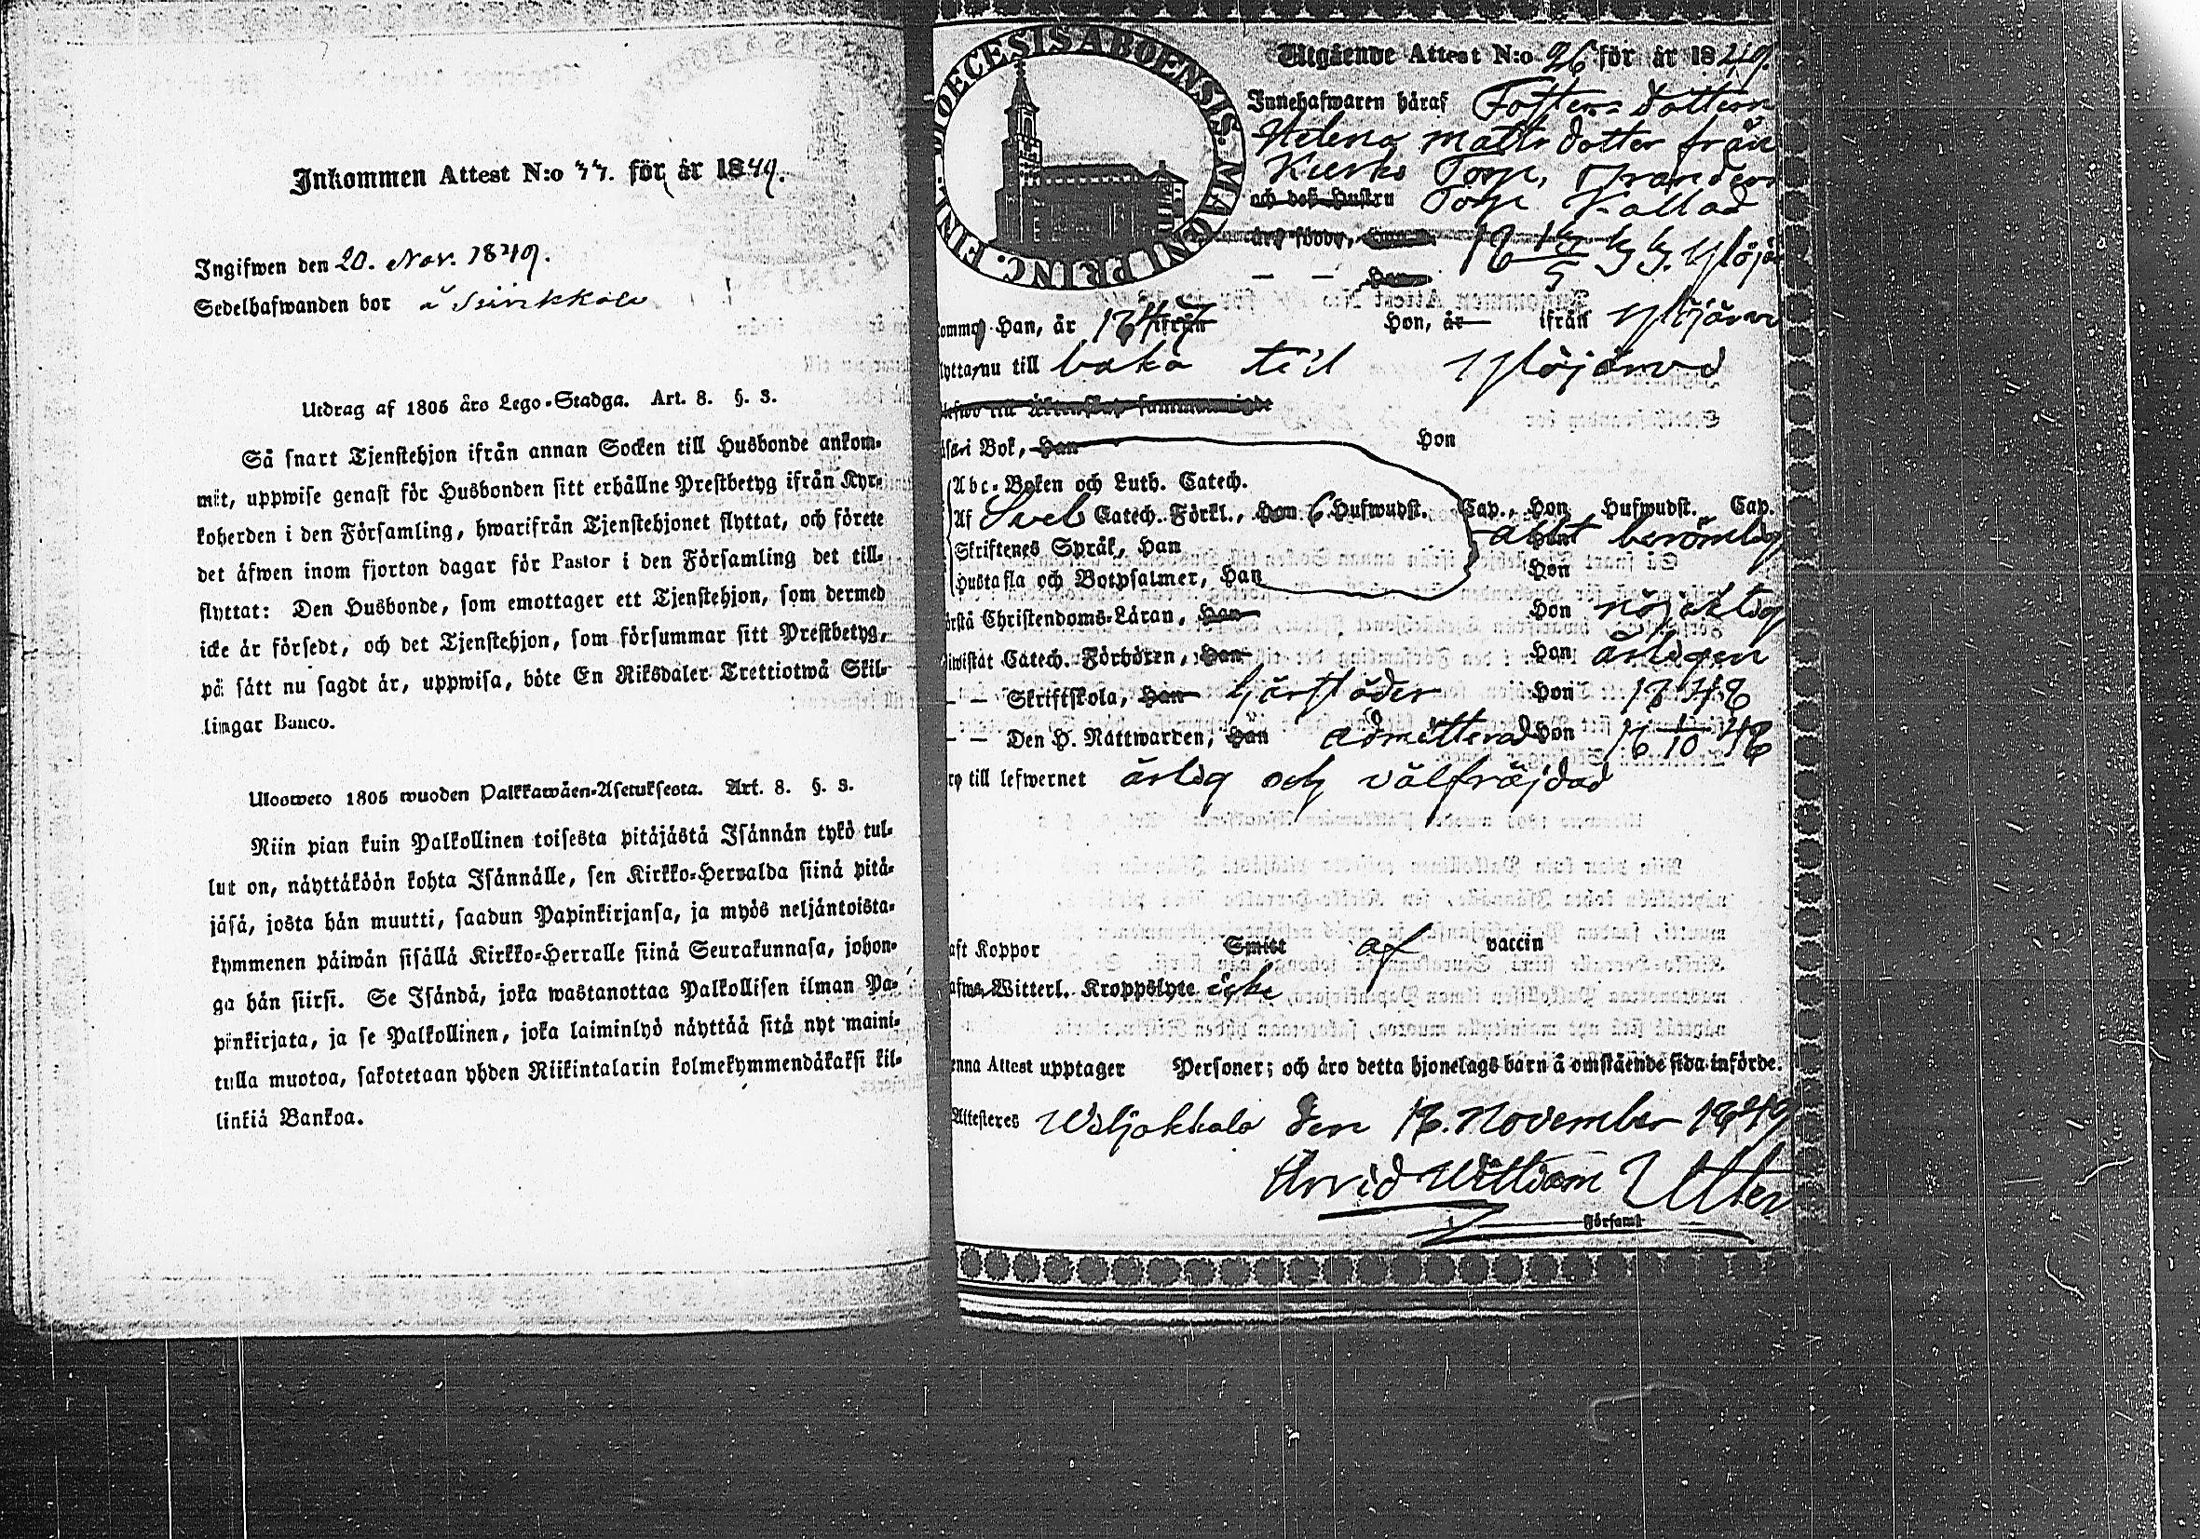 Inkommen Attest N:o 77. för år 1849.
Ingifwen den 20. Nov. 1849.
Sedelhafwanden bor å Siivikkala
Utdrag af 1805 års Lego-Stadga. Art. 8. §. 3.
Så snart Tjenstehjon ifrån annan Socken till Husbonde ankom-
mit, uppwise genast för Husbonden sitt erhållne Prestbetyg ifrån Kyr-
koherden i den Församling, hwarifrån Tjenstehjonet flyttat, och förete
det äfwen inom fjorton dagar för Pastor i den Församling det till-
flyttat: Den Husbonde, som emottager ett Tjenstehjon, som dermed
icke är försedt, och det Tjenstehjon, som försummar sitt Prestbetyg,
på sätt nu sagdt är, uppwisa, böte En Riksdaler Trettiotwå Skil-
lingar Banco.
Ulosweto 1805 wuoden Palkkawäen-Asetuksesta. Art. 8. §. 3.
Niin pian kuin Palkollinen toisesta pitäjästä Isännän tykö tul-
lut on, näyttäköön kohta Isännälle, sen Kirkko-Herralda siinä pitä-
jäsä, josta hän muutti, saadun Papinkirjansa, ja myös neljäntoista-
kymmenen päiwän sisällä Kirkko-Herralle siinä Seurakunnasa, johon-
ga hän siirsi. Se Isändä, joka wastanottaa Palkollisen ilman Pa-
pinkirjata, ja se Palkollinen, joka laiminlyö näyttää sitä nyt maini-
tulla muotoa, sakotetaan yhden Riikintalarin kolmekymmendäkaksi kil-
linkiä Bankoa.
DIOECESIS ABOENSIS. MAGNI PRINC. FINL.
Utgående Attest N:o 96 för år 1849.
Innehafwaren häraf Fosters Dottern
Helena Matts dotter från
Torp,
och deß Hustru Torp Kallad
födde, Ylöjä
Han, år 1847 ifrån Hon, år ifrån Ylöjärvi
flytta, nu till baka till Ylöjärvi
Bok, Han Hon
Abc-Boken och Luth. Catech.
Af Sveb Catech. Förkl., Han 6 Hufwudst. Cap., Hon Hufwudst. Cap.
Skriftenes Språk, Han Hon allt berömlig
Hustafla och Botpsalmer, Han Hon
Christendoms-Läran, Han Hon nöjaktig
Catech. Förhören, Han Hon årligen
— — Skriftskola, Han Hon 1848
— — Den H. Nattwarden, Han admitterad Hon 18 1/10 48
till lefwernet ärlig och välfräjdad
haft Koppor Smitt af vaccin
Witterl. Kroppslyte icke
Denna Attest upptager Personer; och äro detta hjonelags barn å omstående sida införde.
Attesteres Wiljakkala den 18. November 1849
Arvid William Utter
Församl.